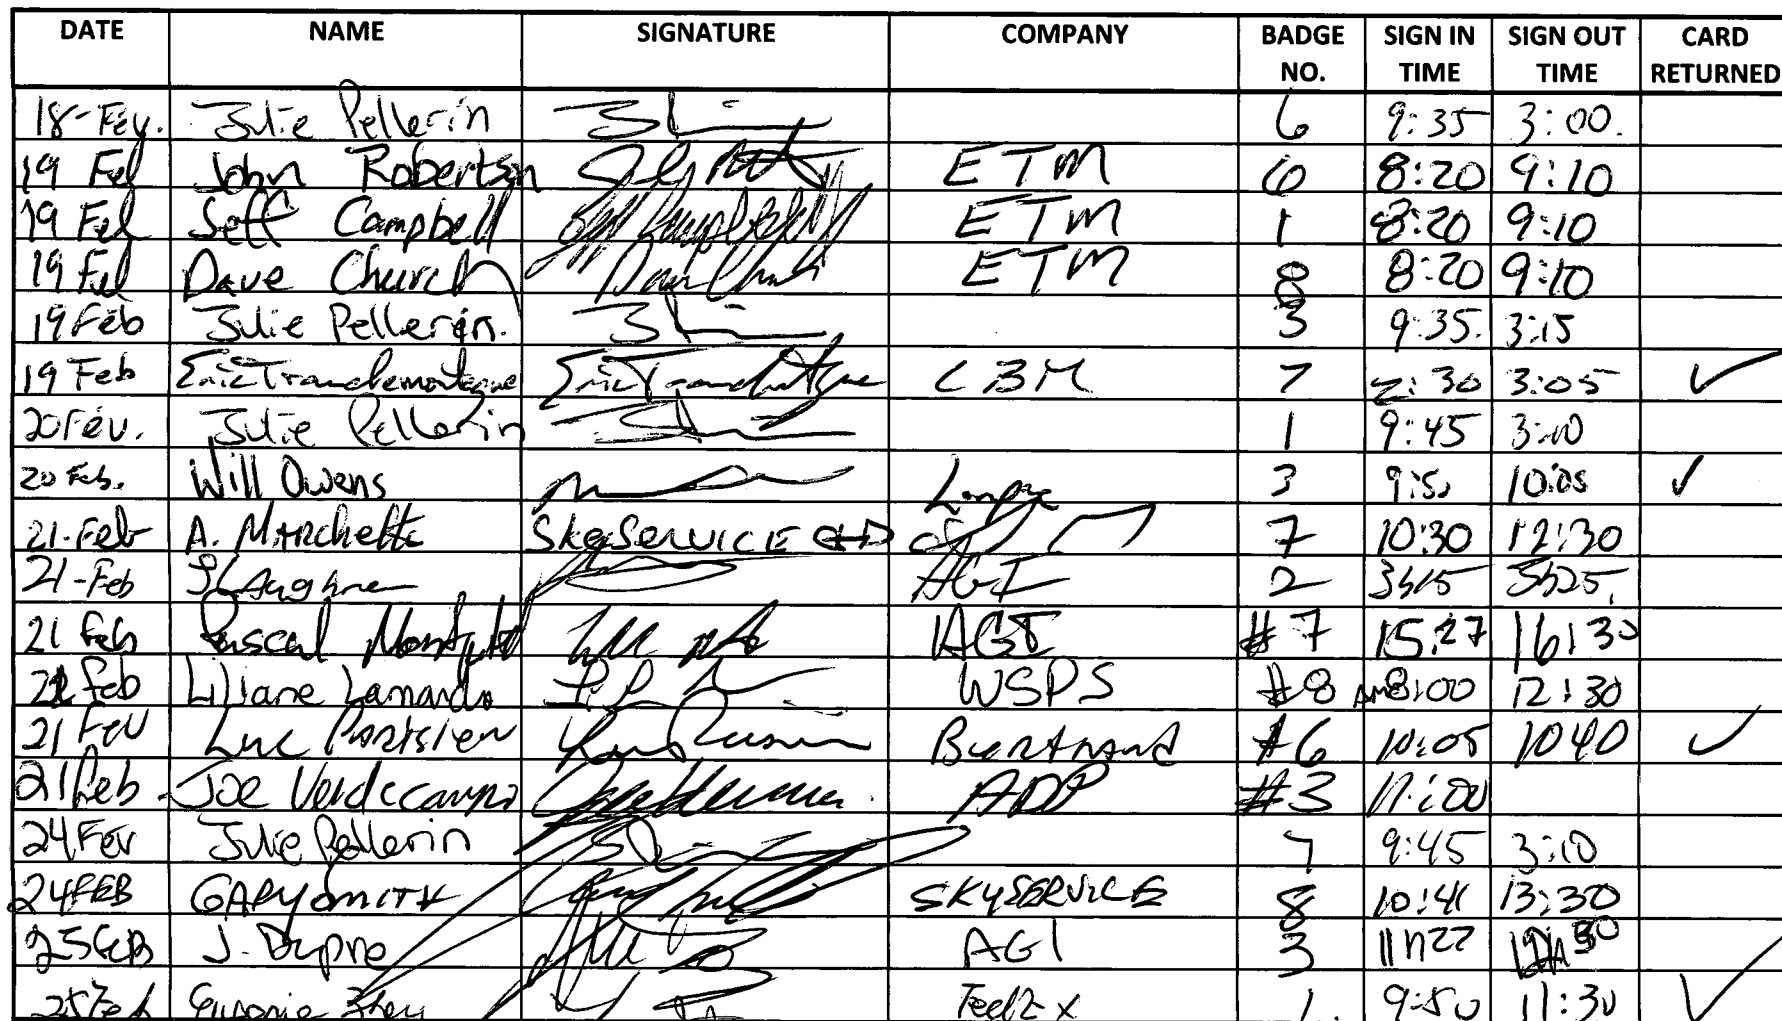 DATE NAME SIGNATURE COMPANY BADGE NO. SIGN IN TIME SIGN OUT TIME CARD RETURNED
18-Fev. Julie Pellerin 6 9:35 3:00.
19 Feb John Robertson ETM 6 8:20 9:10
19 Feb Jeff Campbell Jeff Campbell ETM 1 8:20 9:10
19 Feb Dave Church Dave Church ETM 8 8:20 9:10
19 Feb Julie Pellerin. 3 9:35. 3:15
19 Feb Eric CBM 7 2:30 3:05 ✓
20 Fév. Julie Pellerin 1 9:45 3:10
20 Feb. Will Owens 3 10:05 ✓
21-Feb A. Marchetti SkySERVICE 7 10:30 12:30
21-Feb AGI 2 3h15 3h25
21 Feb Pascal AGI #7 15:27 16:30
Feb Liliane WSPS #8 AM 8:00 12:30
21 Fev Luc Parisien #6 10:05 1040 ✓
21 Feb Joe ADP #3 11:00
24 Fev Julie Pellerin 7 9:45 3:10
24 FEB GARY SMITH SKYSERVICE 8 10:41 13:30
25 FEB J. Dupre AGI 3 11h22
25 Feb 1 9:50 11:30 ✓